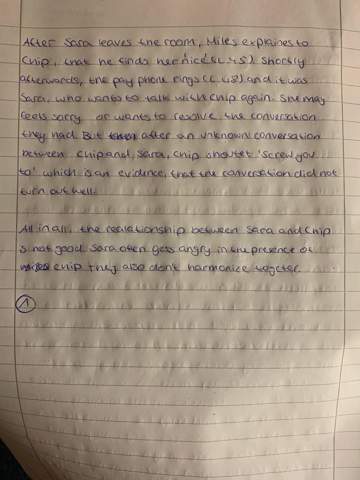 After Sara leaves the room, Miles explaines to
Chip, that he finds her nice (l. 45). Shortly
afterwards, the pay phone rings (l. 48) and it was
Sara, who wants to talk with Chip again. She may
feels sorry or wants to resolve the conversation
they had. But after an unknown conversation
between Chip and Sara, Chip shoutet 'Screw you
to' which is an evidence, that the conversation did not
turn out well.
All in all, the realationship between Sara and Chip
is not good. Sara often gets angry in the presence of
Chip they also don't harmonize together.
1